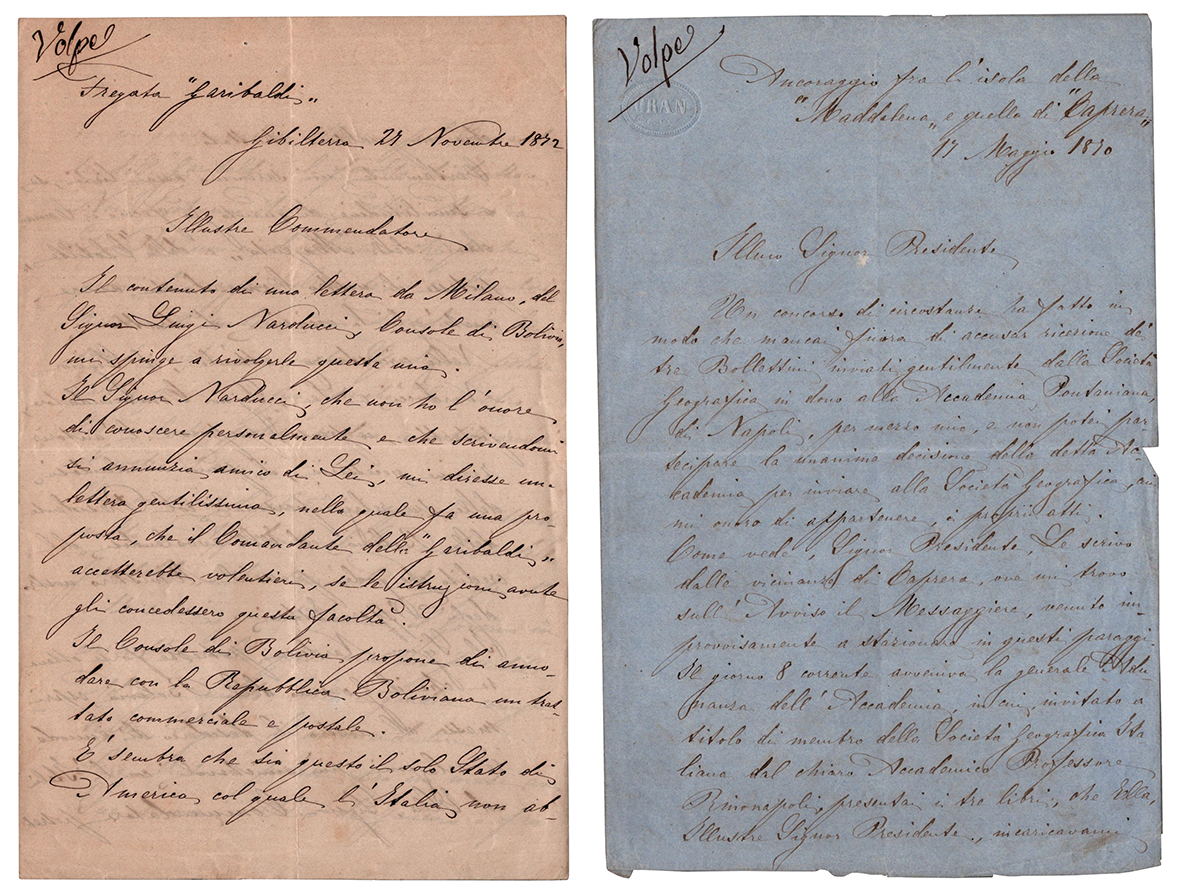 Volpe
Fregata "Garibaldi"
Gibilterra 27 Novembre 1872
Illustre Commendatore
Il contenuto di una lettera da Milano, del
Signor Luigi Narducci, Console di Bolivia,
mi spinge a rivolgerle questa mia.
Il Signor Narducci, che non ho l'onore
di conoscere personalmente e che scrivendomi
si annunzia amico di Lei, mi diresse una
lettera gentilissima, nella quale fa una pro-
posta, che il Comandante della "Garibaldi"
accetterebbe volentieri, se le istruzioni avute
gli concedessero questa facoltà.
Il Console di Bolivia propone di anno-
dare con la Repubblica Boliviana un trat-
tato commerciale e postale.
E' sembra che sia questo il solo Stato di
America col quale l'Italia non ab-
Volpe
Ancoraggio fra l'isola della
"Maddalena" e quella di "Caprera"
17 Maggio 1870
Illmo Signor Presidente
Un concorso di circostanze ha fatto in
modo che mancai finora di accusar ricezione de'
tre Bollettini inviati gentilmente dalla Società
Geografica in dono alla Accademia Pontaniana
di Napoli, per mezzo mio, e non potei par-
tecipare la unanime decisione della detta Ac-
cademia per inviare alla Società Geografica, cui
mi onoro di appartenere, i proprii atti.
Come vede, Signor Presidente, Le scrivo
dalle vicinanze di Caprera, ove mi trovo
sull'Avviso il Messaggiere, venuto im-
provvisamente a stazionare in questi paraggi.
Il giorno 8 corrente avveniva la generale Adu-
nanza dell'Accademia, in cui, invitato a
titolo di membro della Società Geografica Ita-
liana dal chiaro Accademico Professore
presentai i tre libri, che Ella,
Illustre Signor Presidente, incaricavami